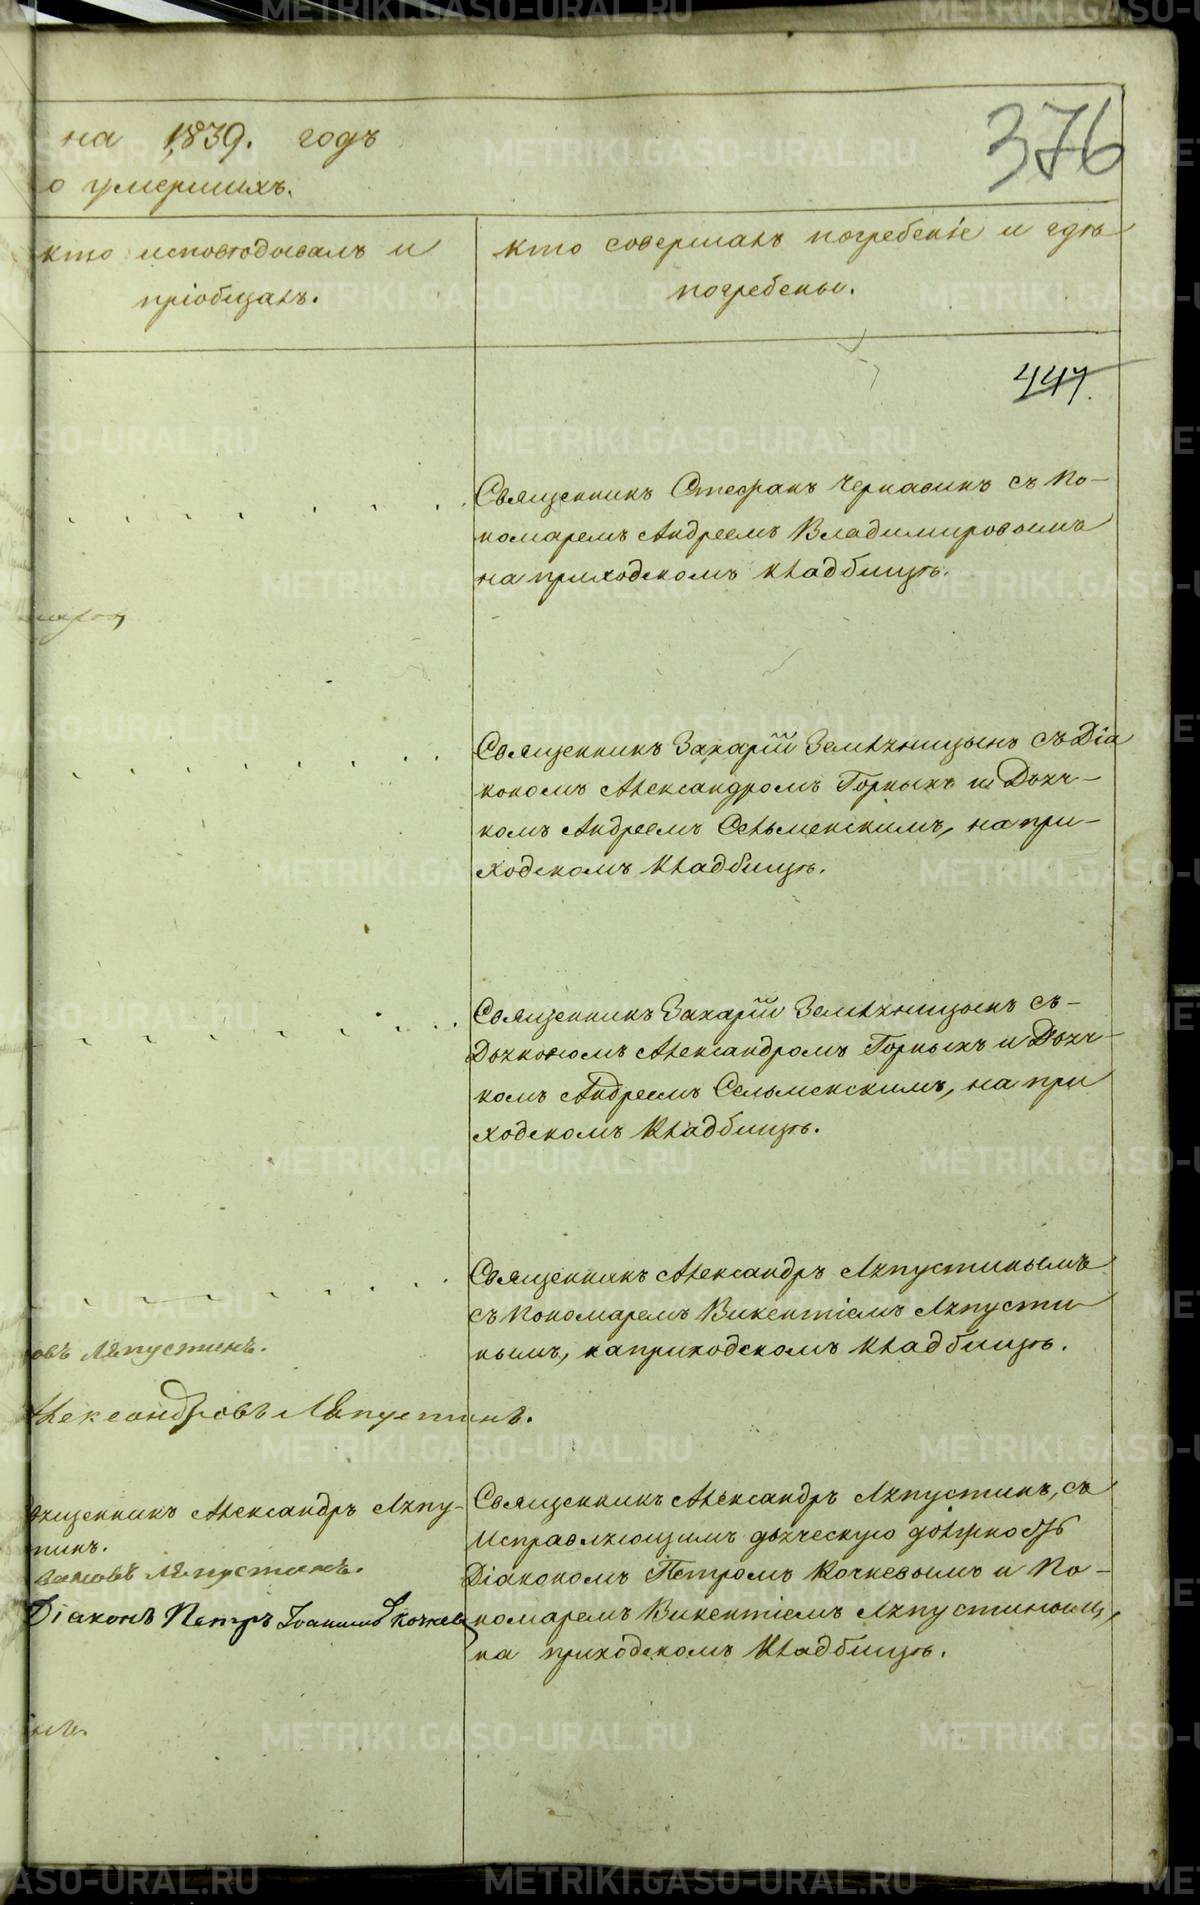 на 1839. годъ
376
о умершихъ.
кто исповѣдовалъ и
пріобщалъ.
кто совершалъ погребеніе и гдѣ
погребены.
447.
Священникъ Стефанъ Чернавинъ съ По-
номаремъ Андреемъ Владимировымъ
на приходскомъ кладбищѣ.
Священникъ Захарій Земляницынъ съ Діа
кономъ Александромъ Горныхъ и Дьяч-
комъ Андреемъ Сельменскимъ, на при-
ходскомъ кладбищѣ.
Священникъ Захарій Земляницынъ съ-
Дьякономъ Александромъ Горныхъ и Дьяч-
комъ Андреемъ Сельменскимъ, на при
ходскомъ кладбищѣ.
Священникъ Александръ Ляпустинымъ
съ Пономаремъ Викентіемъ Ляпусти
нымъ, на приходскомъ кладбищѣ.
овъ Ляпустинъ.
лександровъ Ляпустинъ.
вященникъ Александръ Ляпу-
тинъ.
вановъ Ляпустинъ.
Діаконъ Петръ Іоанновъ Кочнев
Священникъ Александръ Ляпустинъ, съ
исправляющимъ дьяческую должность
Діакономъ Петромъ Кочневымъ и По-
номаремъ Викентіемъ Ляпустинымъ,
на приходскомъ кладбищѣ.
инъ.
METRIKI.GASO-URAL.RU